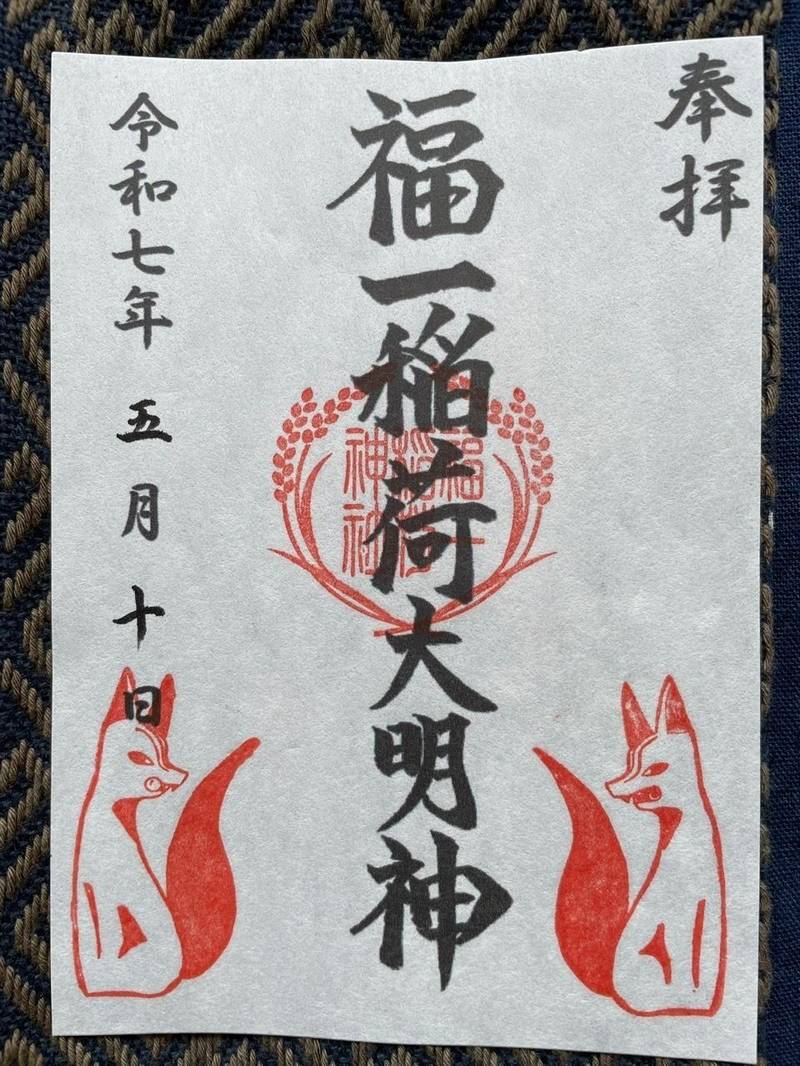 奉拝
福一稲荷大明神
令和七年 五月十日